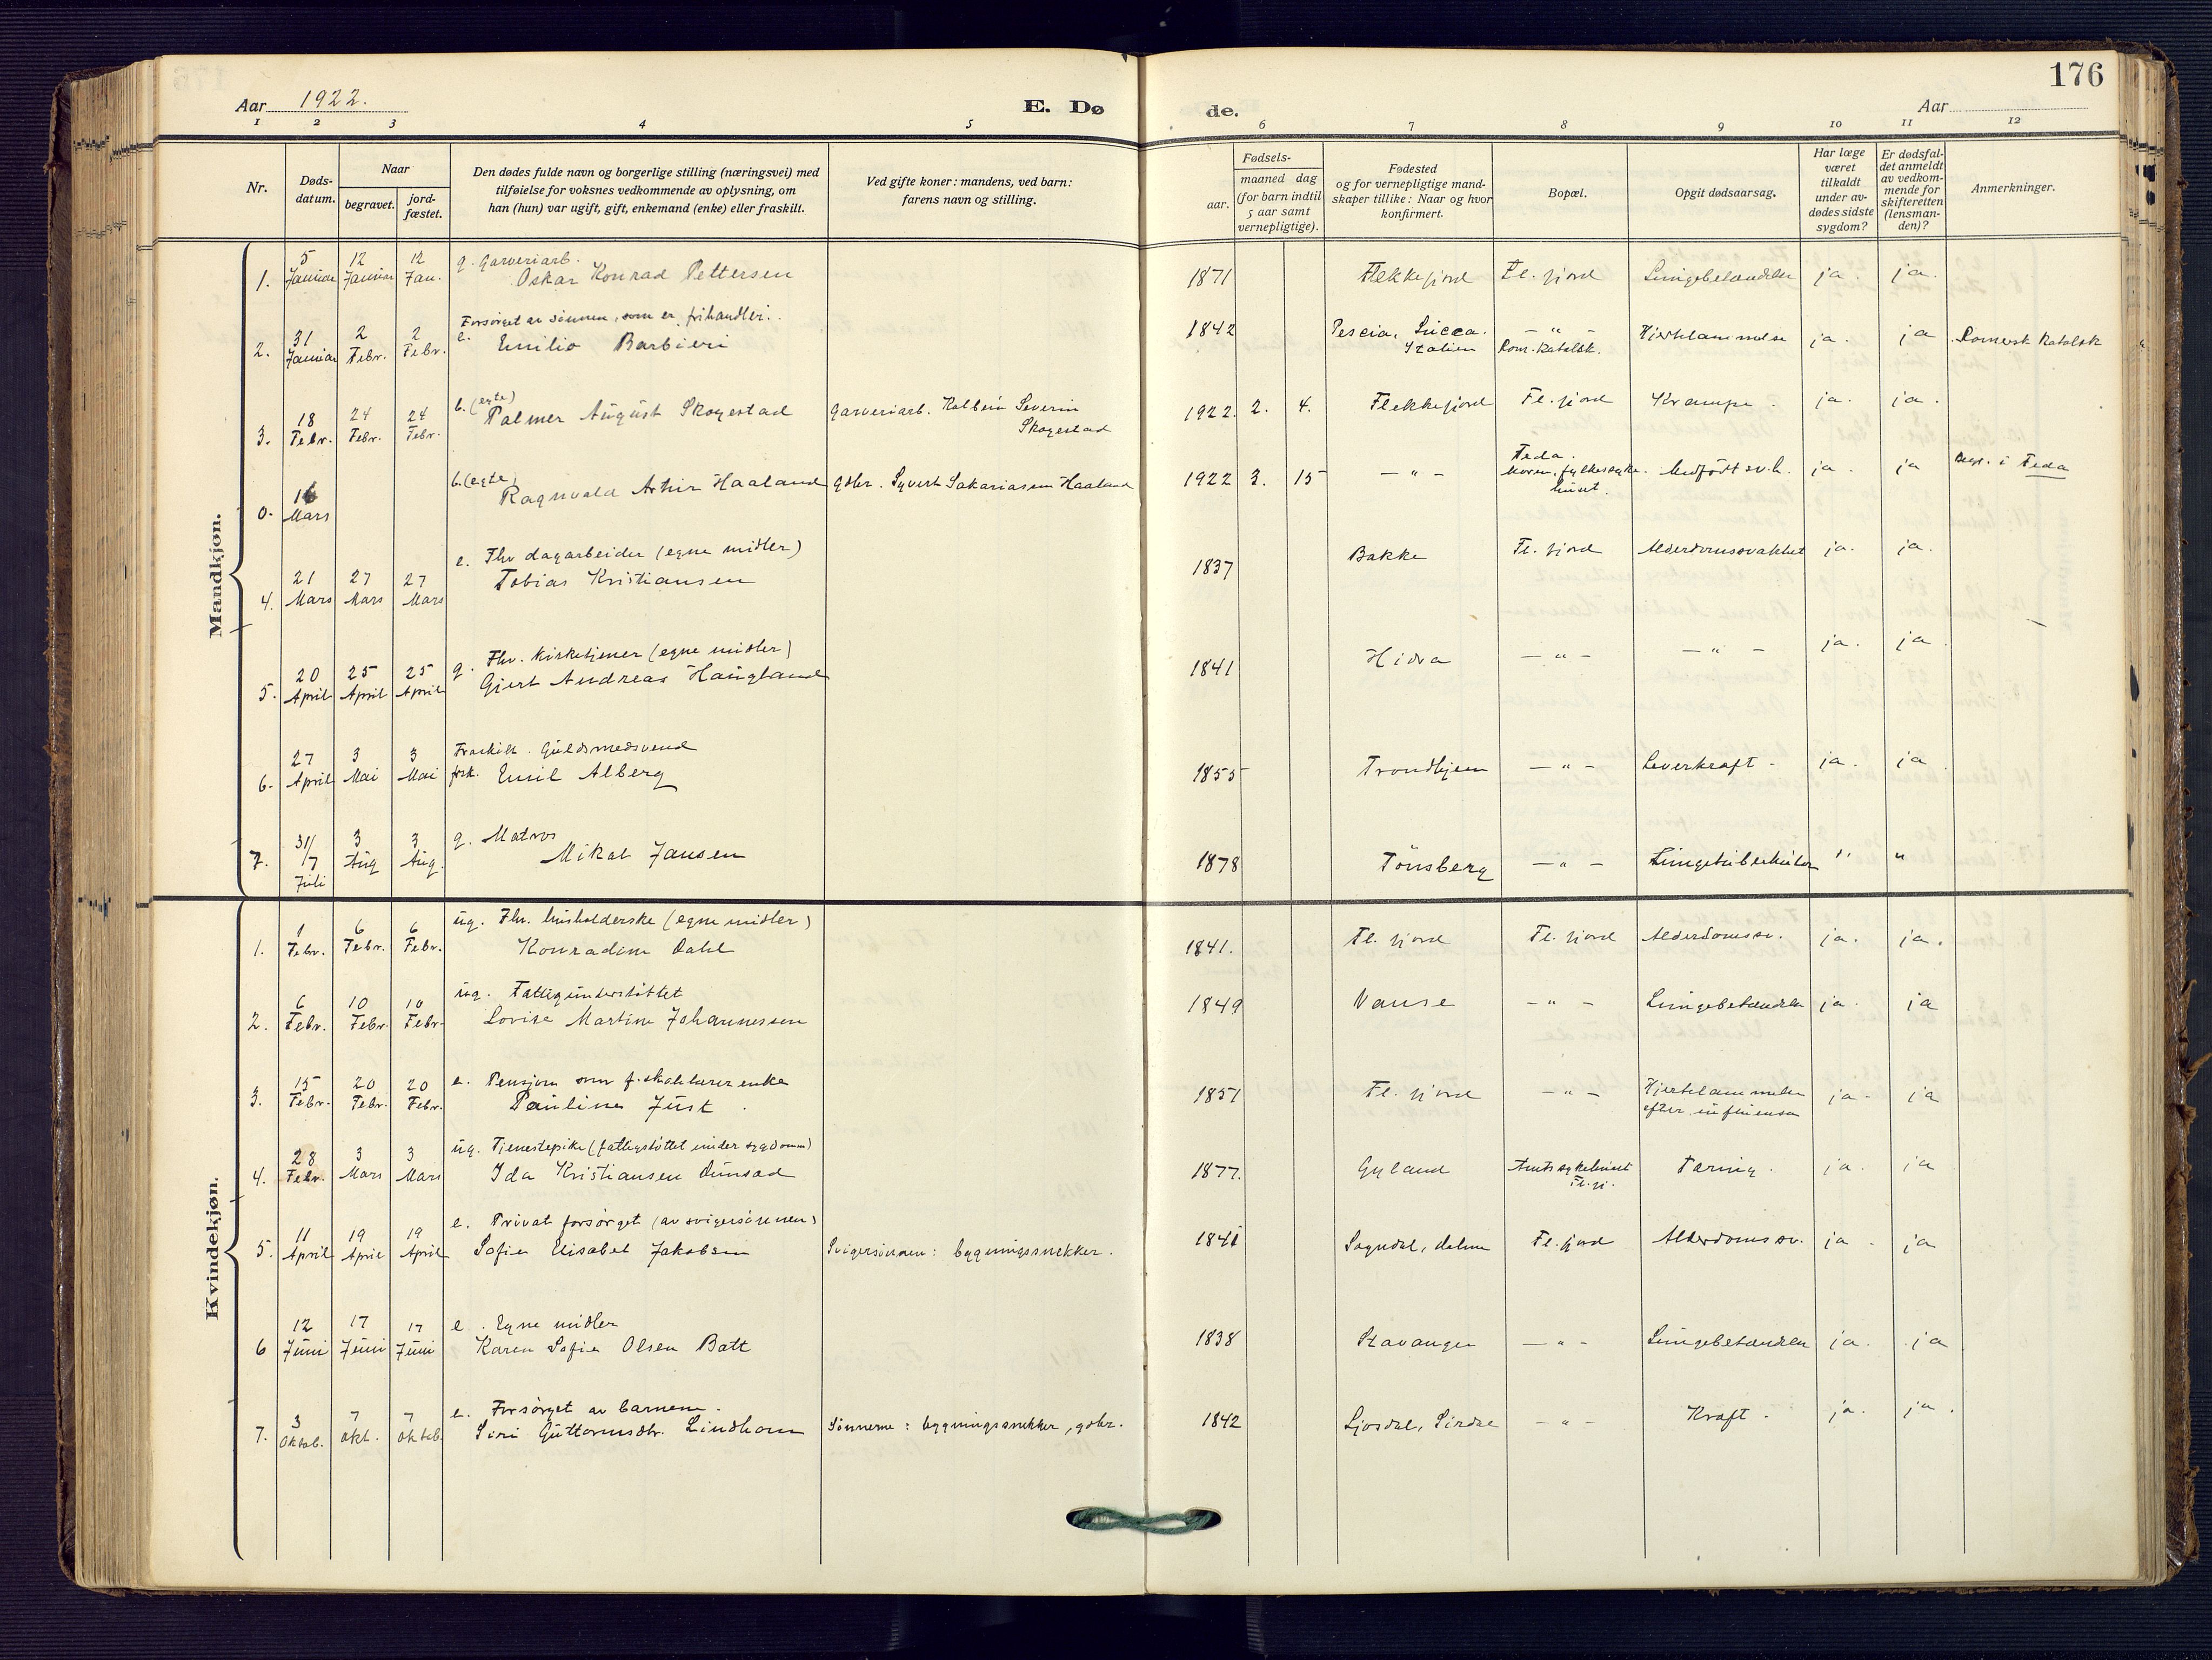 176
Aar 1922.
E. Dø
de.
Aar
1 2 3 4 5 6 7 8 9 10 11 12
Nr.
Døds-
datum.
Naar
begravet.
jord-
fæstet.
Den dødes fulde navn og borgerlige stilling (næringsvei) med
tilføielse for voksnes vedkommende av oplysning, om
han (hun) var ugift, gift, enkemand (enke) eller fraskilt.
Ved gifte koner: mandens, ved barn:
farens navn og stilling.
Fødsels-
aar.
maaned dag
(for barn indtil
5 aar samt
vernepligtige).
Fødested
og for vernepligtige mand-
skaper tillike: Naar og hvor
konfirmert.
Bopæl.
Opgit dødsaarsag.
Har læge
været
tilkaldt
under av-
dødes sidste
sygdom?
Er dødsfal-
det anmeldt
av vedkom-
mende for
skifteretten
(lensman-
den)?
Anmerkninger.
Mandkjøn.
5 12 12 g. Garveriarb.
1. Januar Januar Jan. Oskar Konrad Pettersen 1871 Flekkefjord Fl. fjord Lungebetændelse ja. ja.
Forsørget av sønnen, som er frihandler.
31 2 2 e.
2. Januar Febr. Febr. Emilio Barbieri 1842 Pescia, Lucca. Italien — " — Rom. katolsk. Hjertelammelse ja. ja Romersk katolsk
18 24 24 b. (egte)
3. Febr. Febr. Febr. Palmer August Skogestad Garveriarb. Kolbein Severin Skogestad 1922. 2. 4. Flekkefjord Fl. fjord Krampe. ja. ja.
16 b. (egte)
0. Mars Ragnvald Arthur Haaland gdbr. Syvert Sakariassen Haaland 1922 3. 15 — " — Feda. Moren, fylkessyke-huset. Medfødt sv.h. ja. ja Begr. i Feda
21 27 27 e. Fhv dagarbeider (egne midler)
4. Mars Mars Mars Tobias Kristiansen 1837 Bakke Fl. fjord Alderdomssvakhet ja. ja.
20 25 25 g. Fhv. kirketjener (egne midler)
5. April April April Gjert Andreas Haugland 1841 Hidra — " — — " — ja. ja.
27 3 3 Fraskilt. Guldsmedsvend
6. April Mai Mai frsk. Emil Alberg 1855 Trondhjem — " — Leverkræft. ja. ja
31/7 3 3 g. Matros
7. Juli Aug Aug. Mikal Jansen 1878 Tönsberg — " — Lungetuberkulose " "
Kvindekjøn.
1 6 6 ug. Fhv. husholderske (egne midler)
1. Febr. Febr. Febr. Konradine Dahl 1841. Fl. fjord Fl. fjord Alderdomssv. ja. ja.
6 10 10 ug. Fattigunderstöttet
2. Febr. Febr. Febr. Lovise Martine Johannessen 1849 Vanse — " — Lungebetændelse ja. ja
15 20 20 e. Pensjon som f. skolelærerenke
3. Febr. Febr. Febr. Pauline Just. 1851 Fl. fjord — " — Hjertelammelse efter influensa ja. ja
28 3 3 ug. Tjenestepike (fattigstöttet under sygdommen)
4. Febr. Mars Mars Ida Kristiansen Dunsad 1877. Gyland Amtssykehuset Fl.fj. Tæring. ja. ja
11 19 19 e. Privat forsørget (av svigersönnen)
5. April April April Sofie Elisabet Jakobsen Svigersönnen: bygningssnekker. 1841 Sogndal, Dalene Fl. fjord Alderdomssv. ja. ja
12 17 17 e. Egne midler
6 Juni Juni Juni Karen Sofie Olsen Batt 1838 Stavanger — " — Lungebetændelse ja. ja
3 7 7 e. Forsörget av barnene.
7. Oktob. Okt. Oktob. Siri Guttormsdtr. Lindhom Sönnerne: bygningssnekker, gdbr. 1842 Ljosdal, Sirdal — " — Kræft. ja. ja.